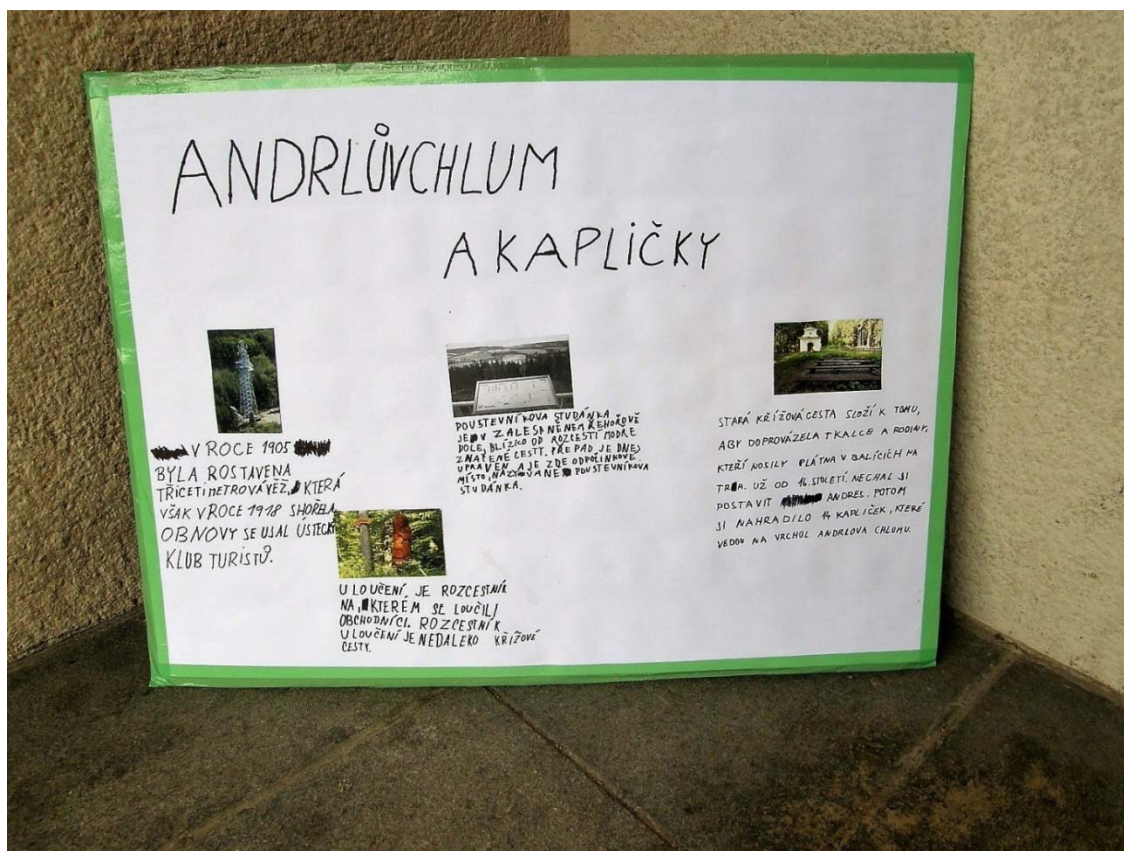 ANDRLŮVCHLUM
A KAPLIČKY
V ROCE 1905
BYLA ROSTAVENA
TŘICETIMETROVÁ VĚŽ, KTERÁ
VŠAK V ROCE 1918 SHOŘELA.
OBNOVY SE UJAL ÚSTECKÝ
KLUB TURISTŮ.
POUSTEVNÍKOVA STUDÁNKA
JE V ZALESNĚNÉM ŘEHOŘOVĚ
DOLE, BLÍZKO OD ROZCESTÍ MODRE
ZNAČENÉ CESTY. PŘEPAD JE DNES
UPRAVEN A JE ZDE ODPOČINKOVÉ
MÍSTO, NAZÝVANÉ POUSTEVNÍKOVA
STUDÁNKA.
U LOUČENÍ, JE ROZCESTNÍK
NA, KTERÉM SE LOUČILI
OBCHODNÍCI. ROZCESTNÍK
U LOUČENÍ JE NEDALEKO KŘÍŽOVÉ
CESTY.
STARÁ KŘÍŽOVÁ CESTA SLOŽÍ K TOMU,
ABY DOPROVÁZELA TKALCE A RODINY,
KTEŘÍ NOSILY PLÁTNA V BALÍCÍCH NA
TRH. UŽ OD 16. STOLETÍ. NECHAL JI
POSTAVIT ANDRES. POTOM
JI NAHRADILO 14 KAPLIČEK, KTERÉ
VEDOU NA VRCHOL ANDRLOVA CHLUMU.